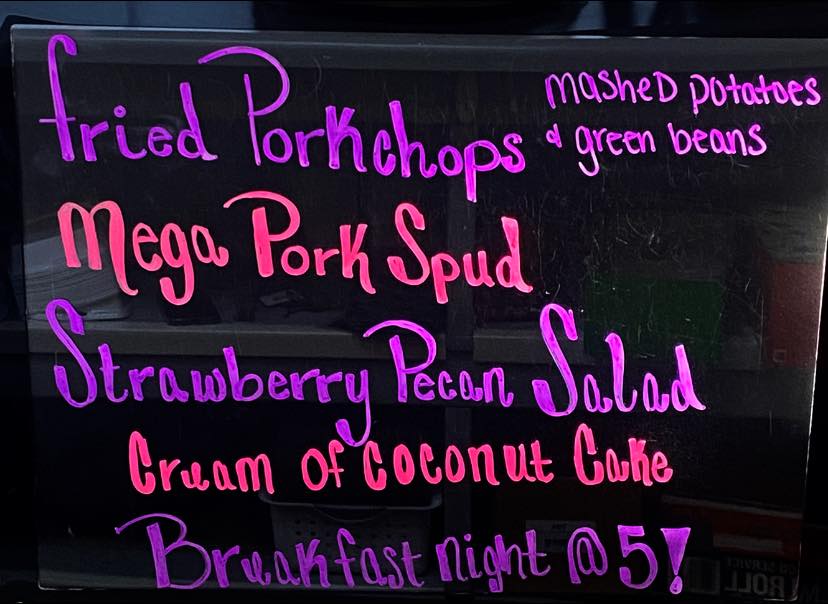 Fried Porkchops mashed potatoes
& green beans
Mega Pork Spud
Strawberry Pecan Salad
Cream of Coconut Cake
Breakfast night @ 5!
ROLL